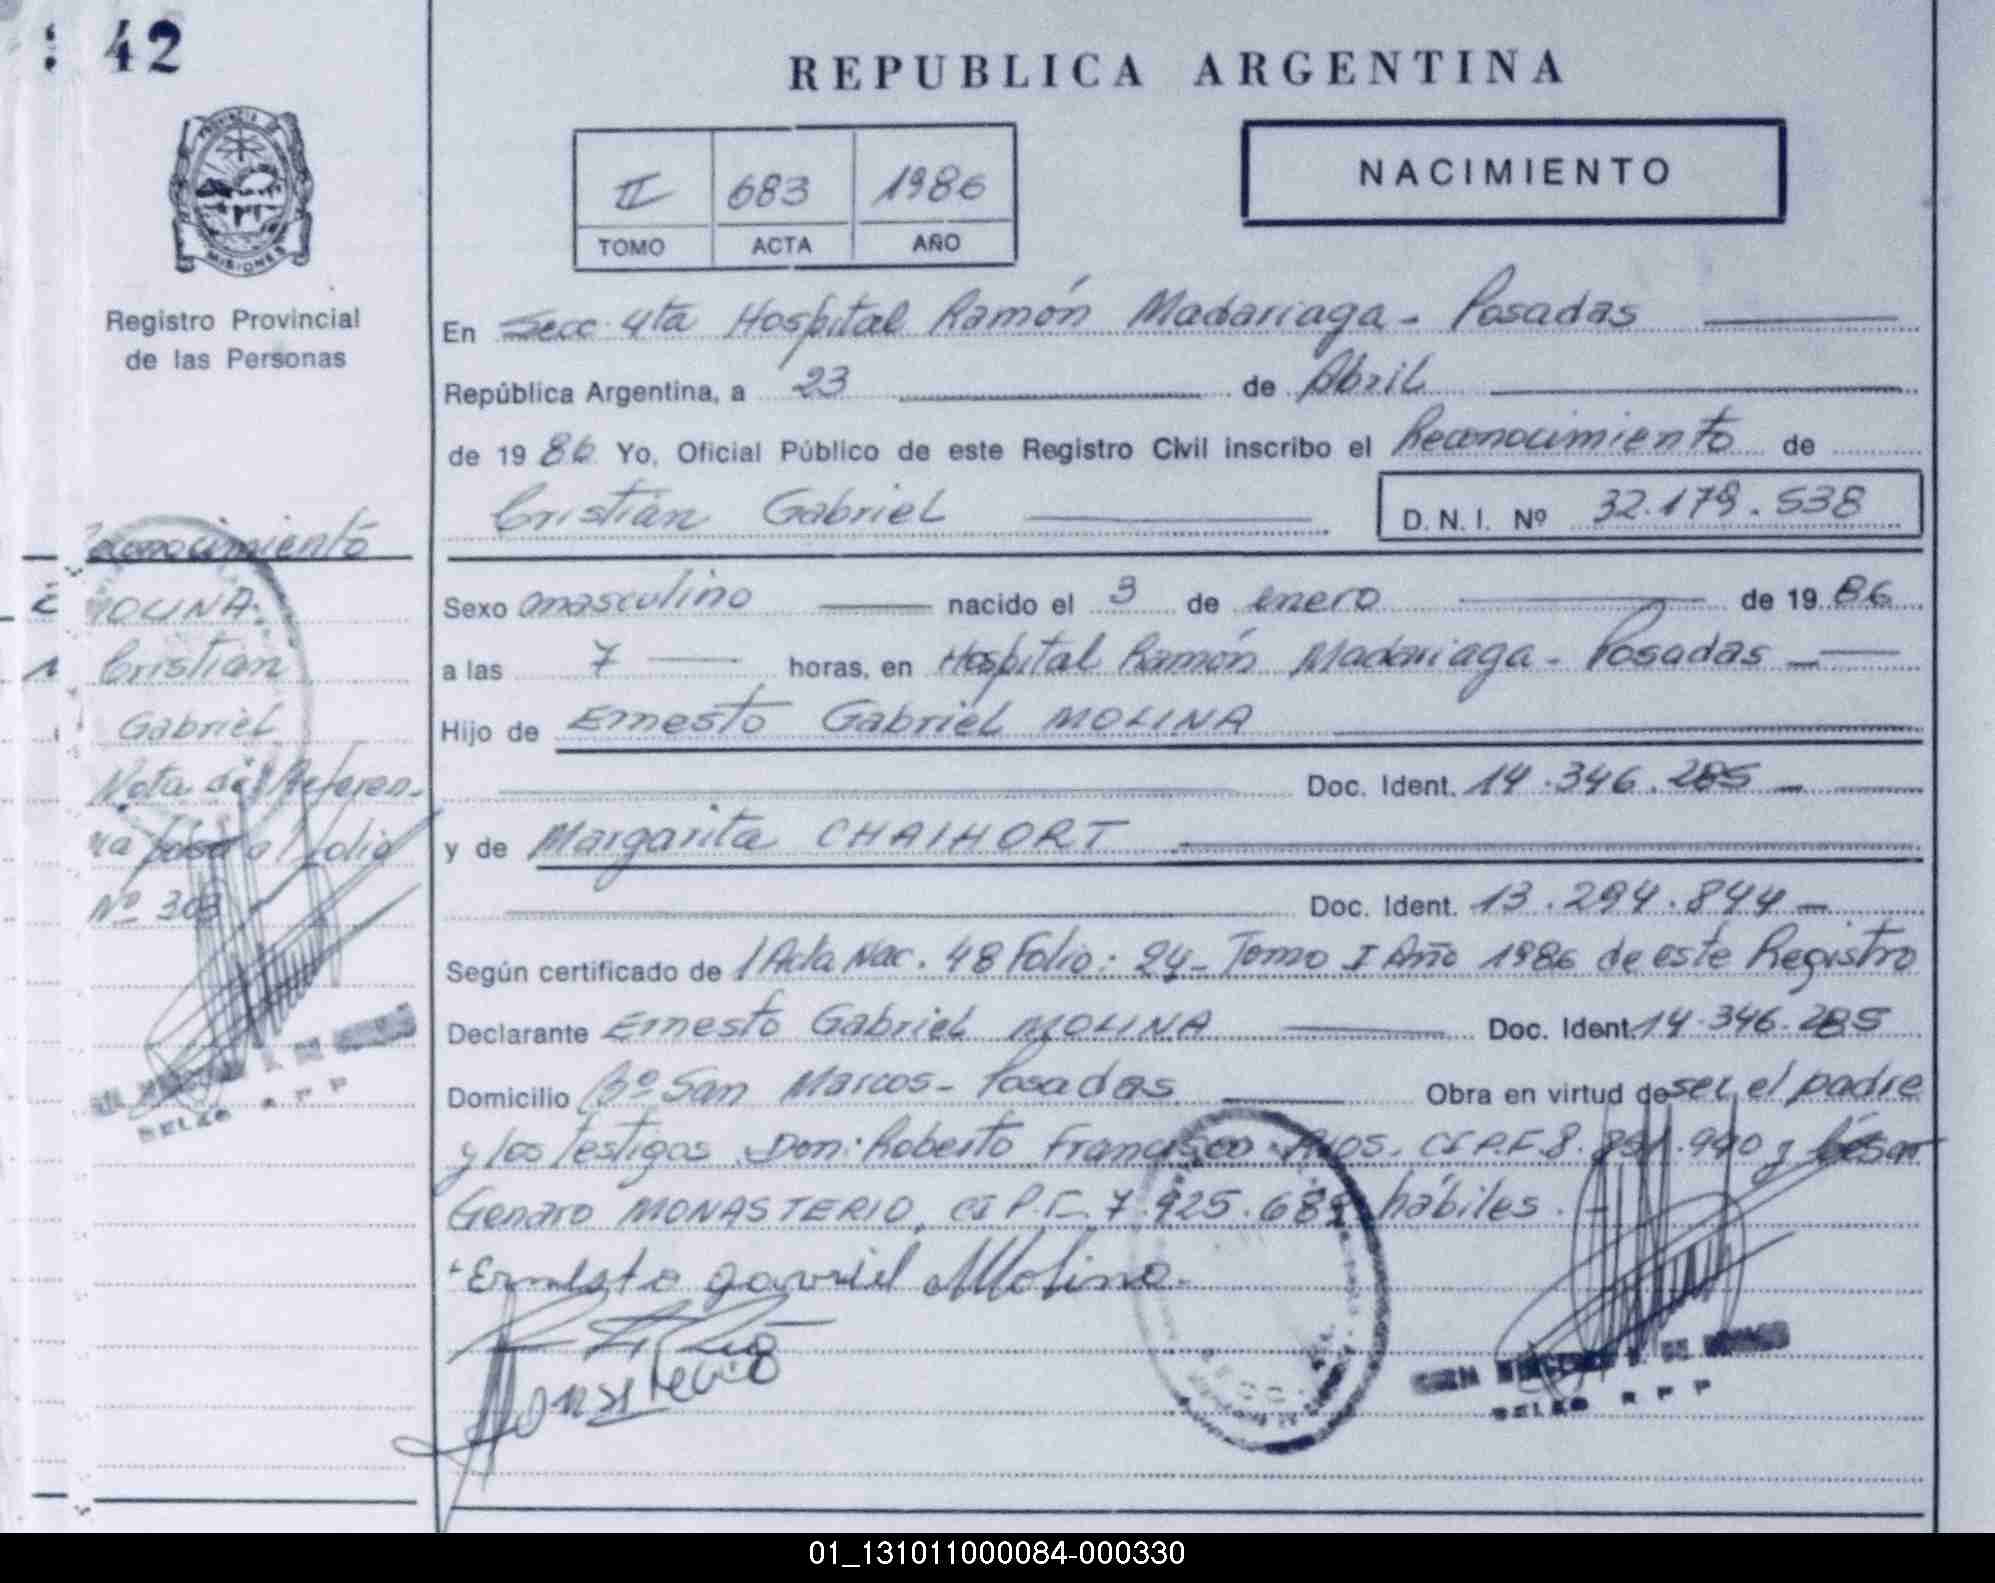 42
REPUBLICA ARGENTINA
NACIMIENTO
II 683 1986
TOMO ACTA AÑO
PROVINCIA DE
MISIONES
Registro Provincial
de las Personas
En Secc. 4ta Hospital Ramón Madariaga - Posadas
República Argentina, a 23 de Abril
de 1986 Yo, Oficial Público de este Registro Civil inscribo el Reconocimiento de
Cristian Gabriel D. N. I. Nº 32.179.538
Sexo masculino nacido el 3 de enero de 1986
a las 7 horas, en Hospital Ramón Madariaga - Posadas
Hijo de Ernesto Gabriel MOLINA
Doc. Ident. 14.346.285
y de Margarita CHAIHORT
Doc. Ident. 13.294.844
Según certificado de Acta Nac. 48 Folio: 24 - Tomo I Año 1986 de este Registro
Declarante Ernesto Gabriel MOLINA Doc. Ident. 14.346.285
Domicilio Bº San Marcos - Posadas Obra en virtud de ser el padre
y los testigos Don: Roberto Francisco CI P.F. 8. y César
Genaro MONASTERIO, CI P.F. 7.925. hábiles.
Ernesto gavriel Molina
Reconocimiento
MOLINA
Cristian
Gabriel
Nota de Referen-
cia pasa al folio
Nº 303
01_131011000084-000330